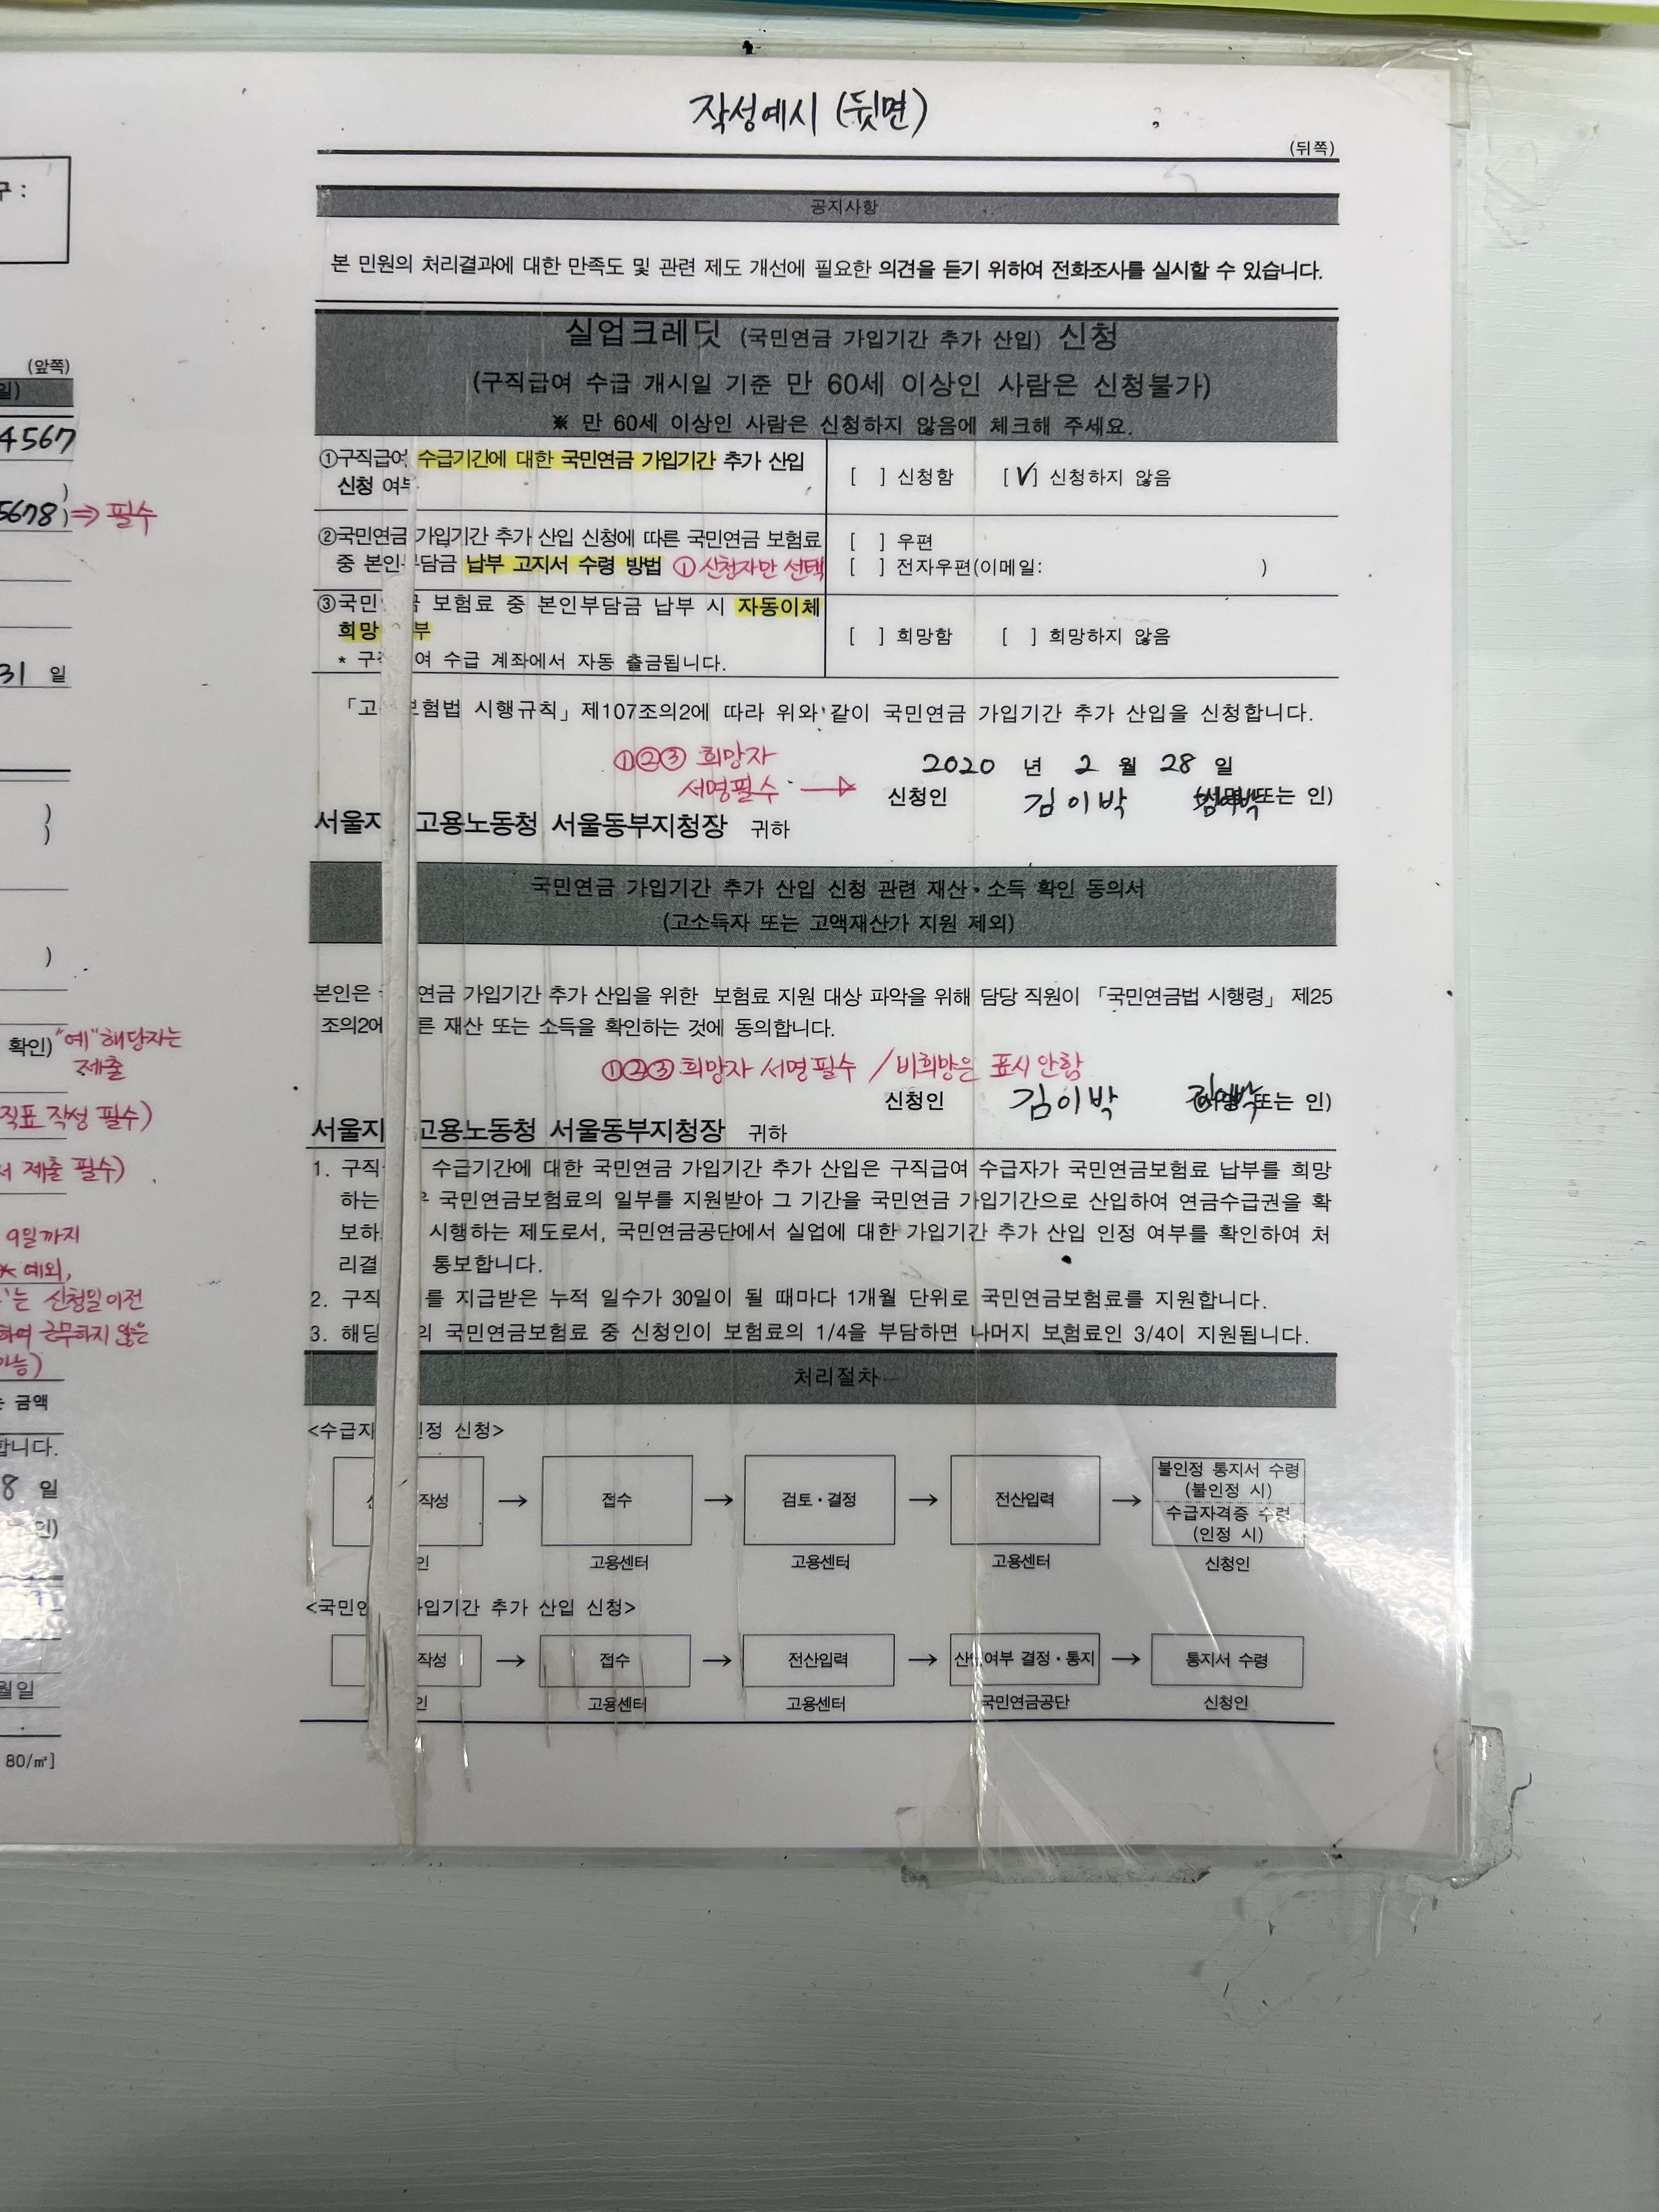 작성예시 (뒷면)
(뒤쪽)
공지사항
본 민원의 처리결과에 대한 만족도 및 관련 제도 개선에 필요한 의견을 듣기 위하여 전화조사를 실시할 수 있습니다.
실업크레딧 (국민연금 가입기간 추가 산입) 신청
(구직급여 수급 개시일 기준 만 60세 이상인 사람은 신청불가)
※ 만 60세 이상인 사람은 신청하지 않음에 체크해 주세요.
①구직급여 수급기간에 대한 국민연금 가입기간 추가 산입
신청 여부
[ ] 신청함 [V] 신청하지 않음
②국민연금 가입기간 추가 산입 신청에 따른 국민연금 보험료
중 본인부담금 납부 고지서 수령 방법 ① 신청자만 선택
[ ] 우편
[ ] 전자우편(이메일: )
③국민 금 보험료 중 본인부담금 납부 시 자동이체
희망 부
* 구 여 수급 계좌에서 자동 출금됩니다.
[ ] 희망함 [ ] 희망하지 않음
「고 보험법 시행규칙」 제107조의2에 따라 위와 같이 국민연금 가입기간 추가 산입을 신청합니다.
①②③ 희망자
서명필수 →
2020 년 2 월 28 일
신청인 김이박 또는 인)
서울지 고용노동청 서울동부지청장 귀하
국민연금 가입기간 추가 산입 신청 관련 재산·소득 확인 동의서
(고소득자 또는 고액재산가 지원 제외)
본인은 연금 가입기간 추가 산입을 위한 보험료 지원 대상 파악을 위해 담당 직원이 「국민연금법 시행령」 제25
조의2에 른 재산 또는 소득을 확인하는 것에 동의합니다.
①②③ 희망자 서명필수 / 비희망은 표시안함
신청인 김이박 또는 인)
서울지 고용노동청 서울동부지청장 귀하
1. 구직 수급기간에 대한 국민연금 가입기간 추가 산입은 구직급여 수급자가 국민연금보험료 납부를 희망
하는 국민연금보험료의 일부를 지원받아 그 기간을 국민연금 가입기간으로 산입하여 연금수급권을 확
보하 시행하는 제도로서, 국민연금공단에서 실업에 대한 가입기간 추가 산입 인정 여부를 확인하여 처
리결 통보합니다.
2. 구직 를 지급받은 누적 일수가 30일이 될 때마다 1개월 단위로 국민연금보험료를 지원합니다.
3. 해당 의 국민연금보험료 중 신청인이 보험료의 1/4을 부담하면 나머지 보험료인 3/4이 지원됩니다.
처리절차
<수급자 인정 신청>
작성 → 접수 → 검토·결정 → 전산입력 → 불인정 통지서 수령
(불인정 시)
수급자격증 수령
(인정 시)
인 고용센터 고용센터 고용센터 신청인
<국민연 가입기간 추가 산입 신청>
작성 → 접수 → 전산입력 → 산입여부 결정·통지 → 통지서 수령
인 고용센터 고용센터 국민연금공단 신청인
구 :
(앞쪽)
일)
4567
5678) ⇒ 필수
31 일
확인) "예"해당자는
제출
직표 작성 필수)
서 제출 필수)
9일까지
* 예외,
'는 신청일이전
하여 근무하지 않은
가능)
금액
합니다.
8 일
인)
월일
80/㎡]